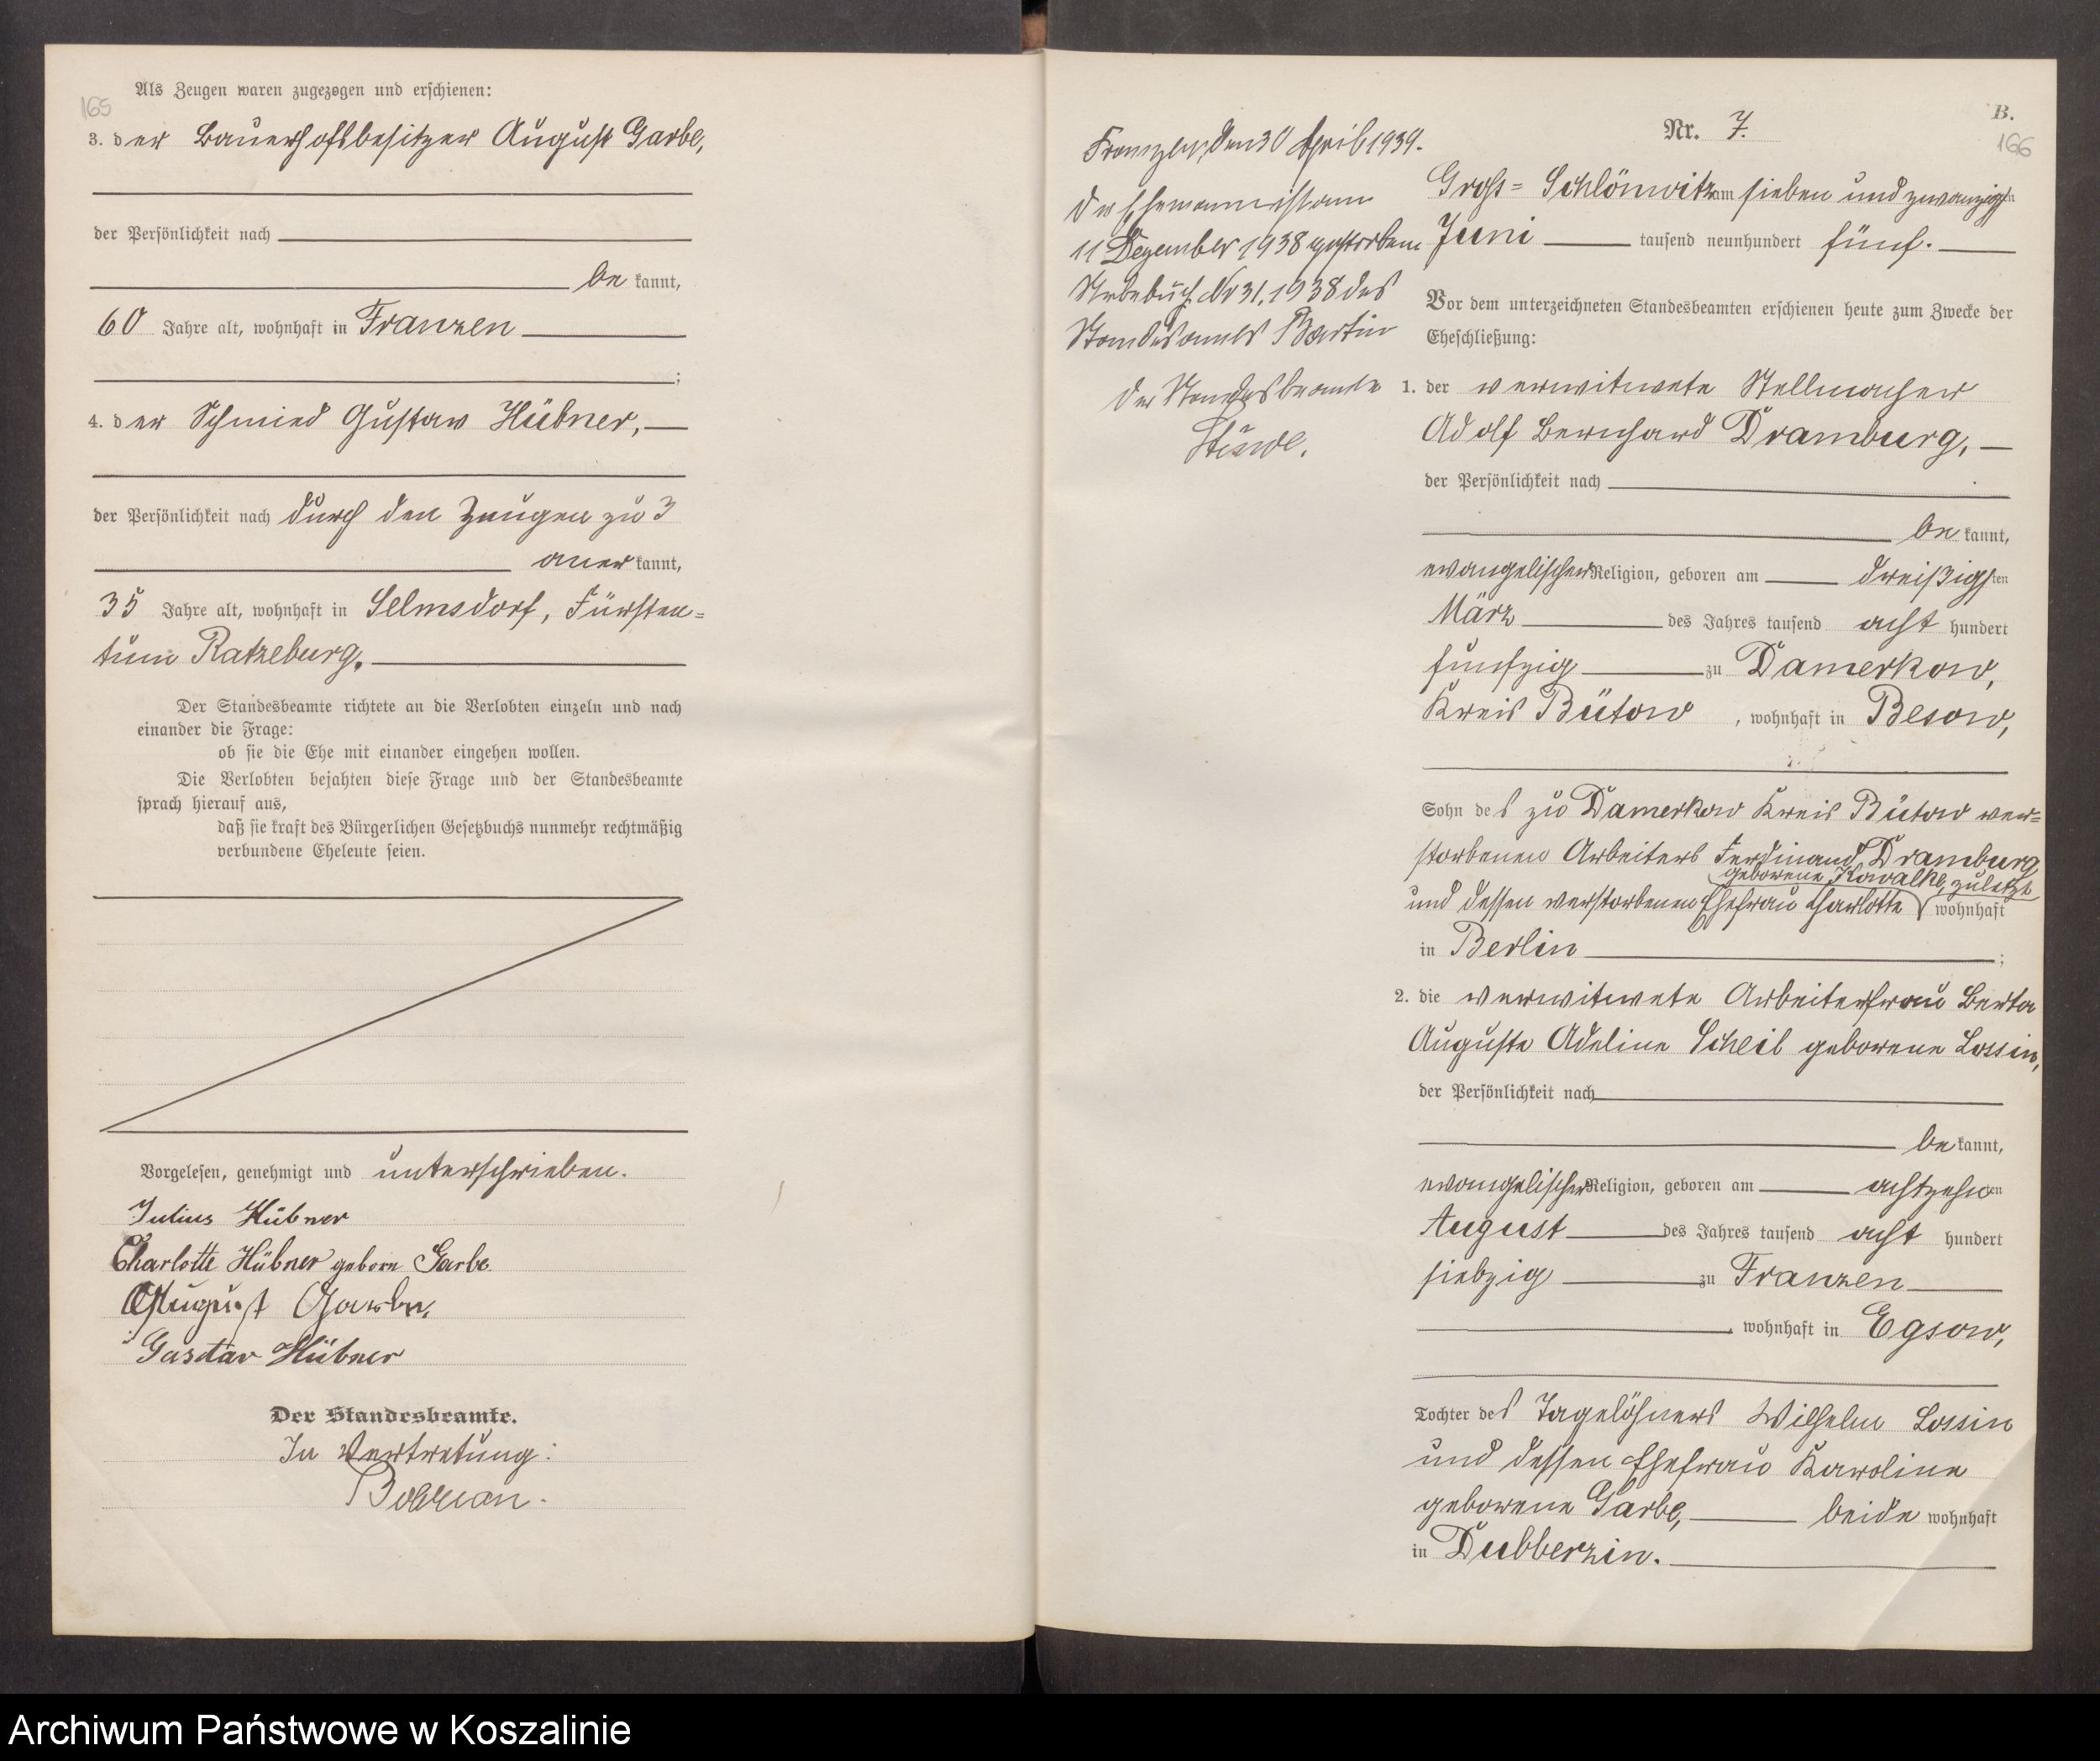 165
Als Zeugen waren zugezogen und erschienen:
3. der Bauerhofsbesitzer August Garbe,
der Persönlichkeit nach
be kannt,
60 Jahre alt, wohnhaft in Franzen
;
4. der Schmied Gustav Hübner,
der Persönlichkeit nach durch den Zeugen zu 3
aner kannt,
35 Jahre alt, wohnhaft in Selmsdorf, Fürsten=
tum Ratzeburg.
Der Standesbeamte richtete an die Verlobten einzeln und nach
einander die Frage:
ob sie die Ehe mit einander eingehen wollen.
Die Verlobten bejahten diese Frage und der Standesbeamte
sprach hierauf aus,
daß sie kraft des Bürgerlichen Gesetzbuchs nunmehr rechtmäßig
verbundene Eheleute seien.
Vorgelesen, genehmigt und unterschrieben.
Julius Hübner
Charlotte Hübner geborn Garbe
August Garbe,
Gustav Hübner
Der Standesbeamte.
In Vertretung:
B.
166
Franzen, den 30 April 1939.
Der Ehemann ist am
11 Dezember 1938 gestorben
Sterbebuch Nr 31, 1938 des
Standesamts Bartin
Der Standesbeamte
Nr. 7.
Gross=Schlönwitz am sieben und zwanzigsten
Juni tausend neunhundert fünf.
Vor dem unterzeichneten Standesbeamten erschienen heute zum Zwecke der
Eheschließung:
1. der verwitwete Stellmacher
Adolf Bernhard Dramburg,
der Persönlichkeit nach
be kannt,
evangelischer Religion, geboren am dreißigsten
März des Jahres tausend acht hundert
fünfzig zu Damerkow,
Kreis Bütow, wohnhaft in Besow,
Sohn des zu Damerkow Kreis Bütow ver=
storbenen Arbeiters Ferdinand Dramburg
geborene Kowalke, zuletzt
und dessen verstorbenen Ehefrau Charlotte wohnhaft
in Berlin ;
2. die verwitwete Arbeiterfrau Berta
Auguste Adeline Scheil geborene Lossin,
der Persönlichkeit nach
be kannt,
evangelischer Religion, geboren am achtzehnten
August des Jahres tausend acht hundert
siebzig zu Franzen
, wohnhaft in Egsow,
Tochter des Tagelöhners Wilhelm Lossin
und dessen Ehefrau Karoline
geborene Garbe, beide wohnhaft
in Dubberzin.
Archiwum Państwowe w Koszalinie